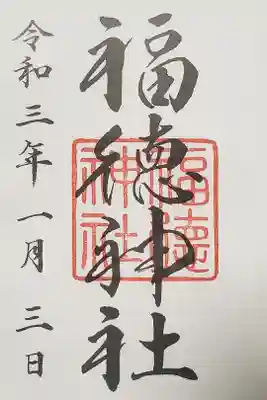 福徳神社
福徳神社
令和三年一月三日